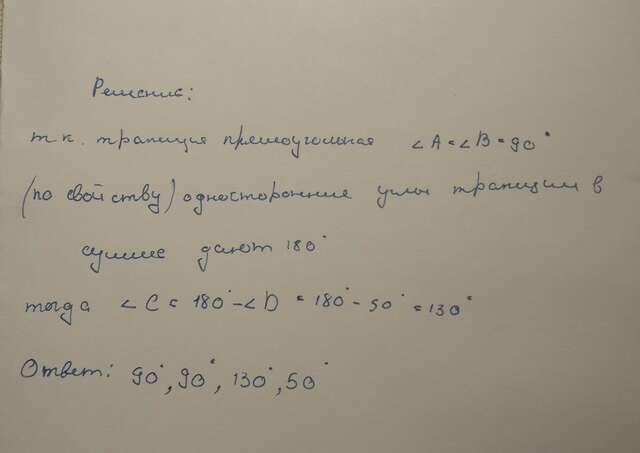 Решение:
т.к. трапеция прямоугольная ∠A=∠B=90°
(по свойству) односторонние углы трапеции в
сумме дают 180°
тогда ∠C = 180°-∠D = 180°- 50° = 130°
Ответ: 90°, 90°, 130°, 50°